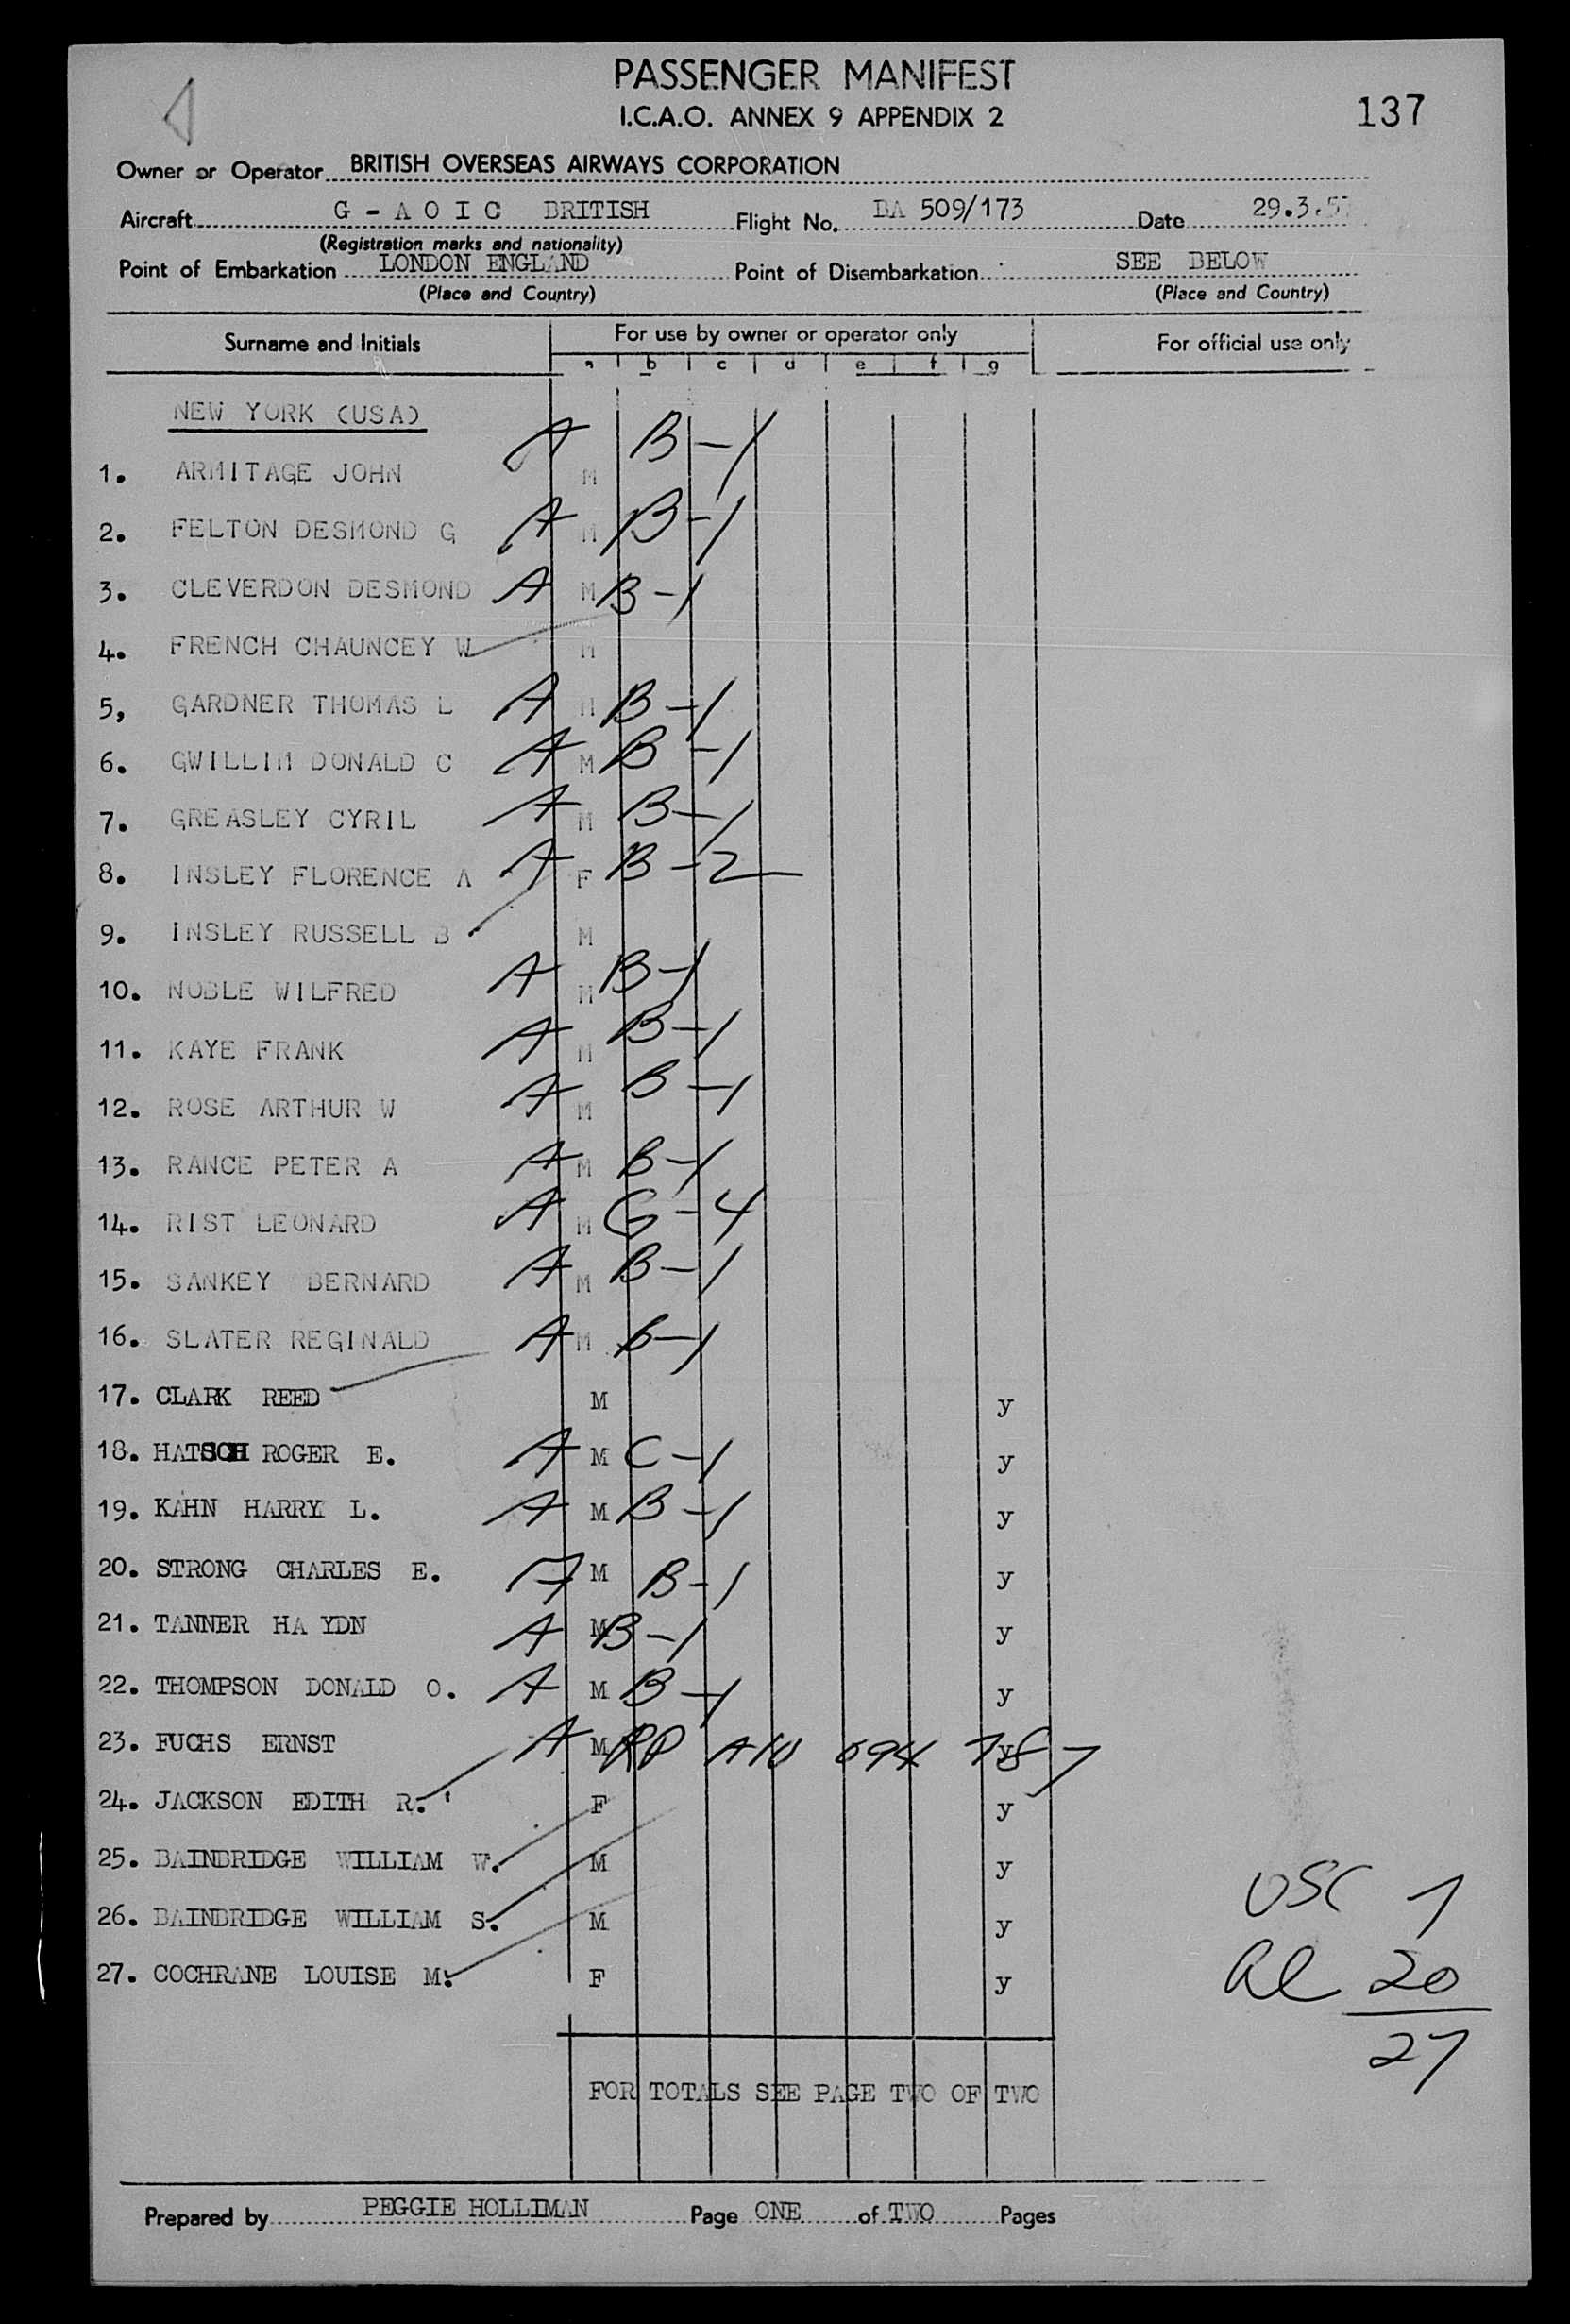 PASSENGER MANIFEST
I.C.A.O. ANNEX 9 APPENDIX 2
137
Owner or Operator BRITISH OVERSEAS AIRWAYS CORPORATION
Aircraft G - A O I C BRITISH Flight No. BA 509/173 Date 29.3.57
(Registration marks and nationality)
Point of Embarkation LONDON ENGLAND Point of Disembarkation SEE BELOW
(Place and Country) (Place and Country)
Surname and Initials For use by owner or operator only For official use only
a b c d e f g
NEW YORK (USA)
1. ARMITAGE JOHN A M B-1
2. FELTON DESMOND G A M B-1
3. CLEVERDON DESMOND A M B-1
4. FRENCH CHAUNCEY W M
5, GARDNER THOMAS L A M B-1
6. GWILLIM DONALD C A M B-1
7. GREASLEY CYRIL A M B-1
8. INSLEY FLORENCE A A F B-2
9. INSLEY RUSSELL B M
10. NOBLE WILFRED A M B-1
11. KAYE FRANK A M B-1
12. ROSE ARTHUR W A M B-1
13. RANCE PETER A A M B-1
14. RIST LEONARD A M G-4
15. SANKEY BERNARD A M B-1
16. SLATER REGINALD A M B-1
17. CLARK REED M y
18. HATSCH ROGER E. A M C-1 y
19. KAHN HARRY L. A M B-1 y
20. STRONG CHARLES E. A M B-1 y
21. TANNER HA YDN A M B-1 y
22. THOMPSON DONALD O. A M B-1 y
23. FUCHS ERNST A M RP A10 694 787 y
24. JACKSON EDITH R. F y
25. BAINBRIDGE WILLIAM W. M y
26. BAINBRIDGE WILLIAM S. M y
27. COCHRANE LOUISE M. F y
USC 7
al 20
27
FOR TOTALS SEE PAGE TWO OF TWO
Prepared by PEGGIE HOLLIMAN Page ONE of TWO Pages